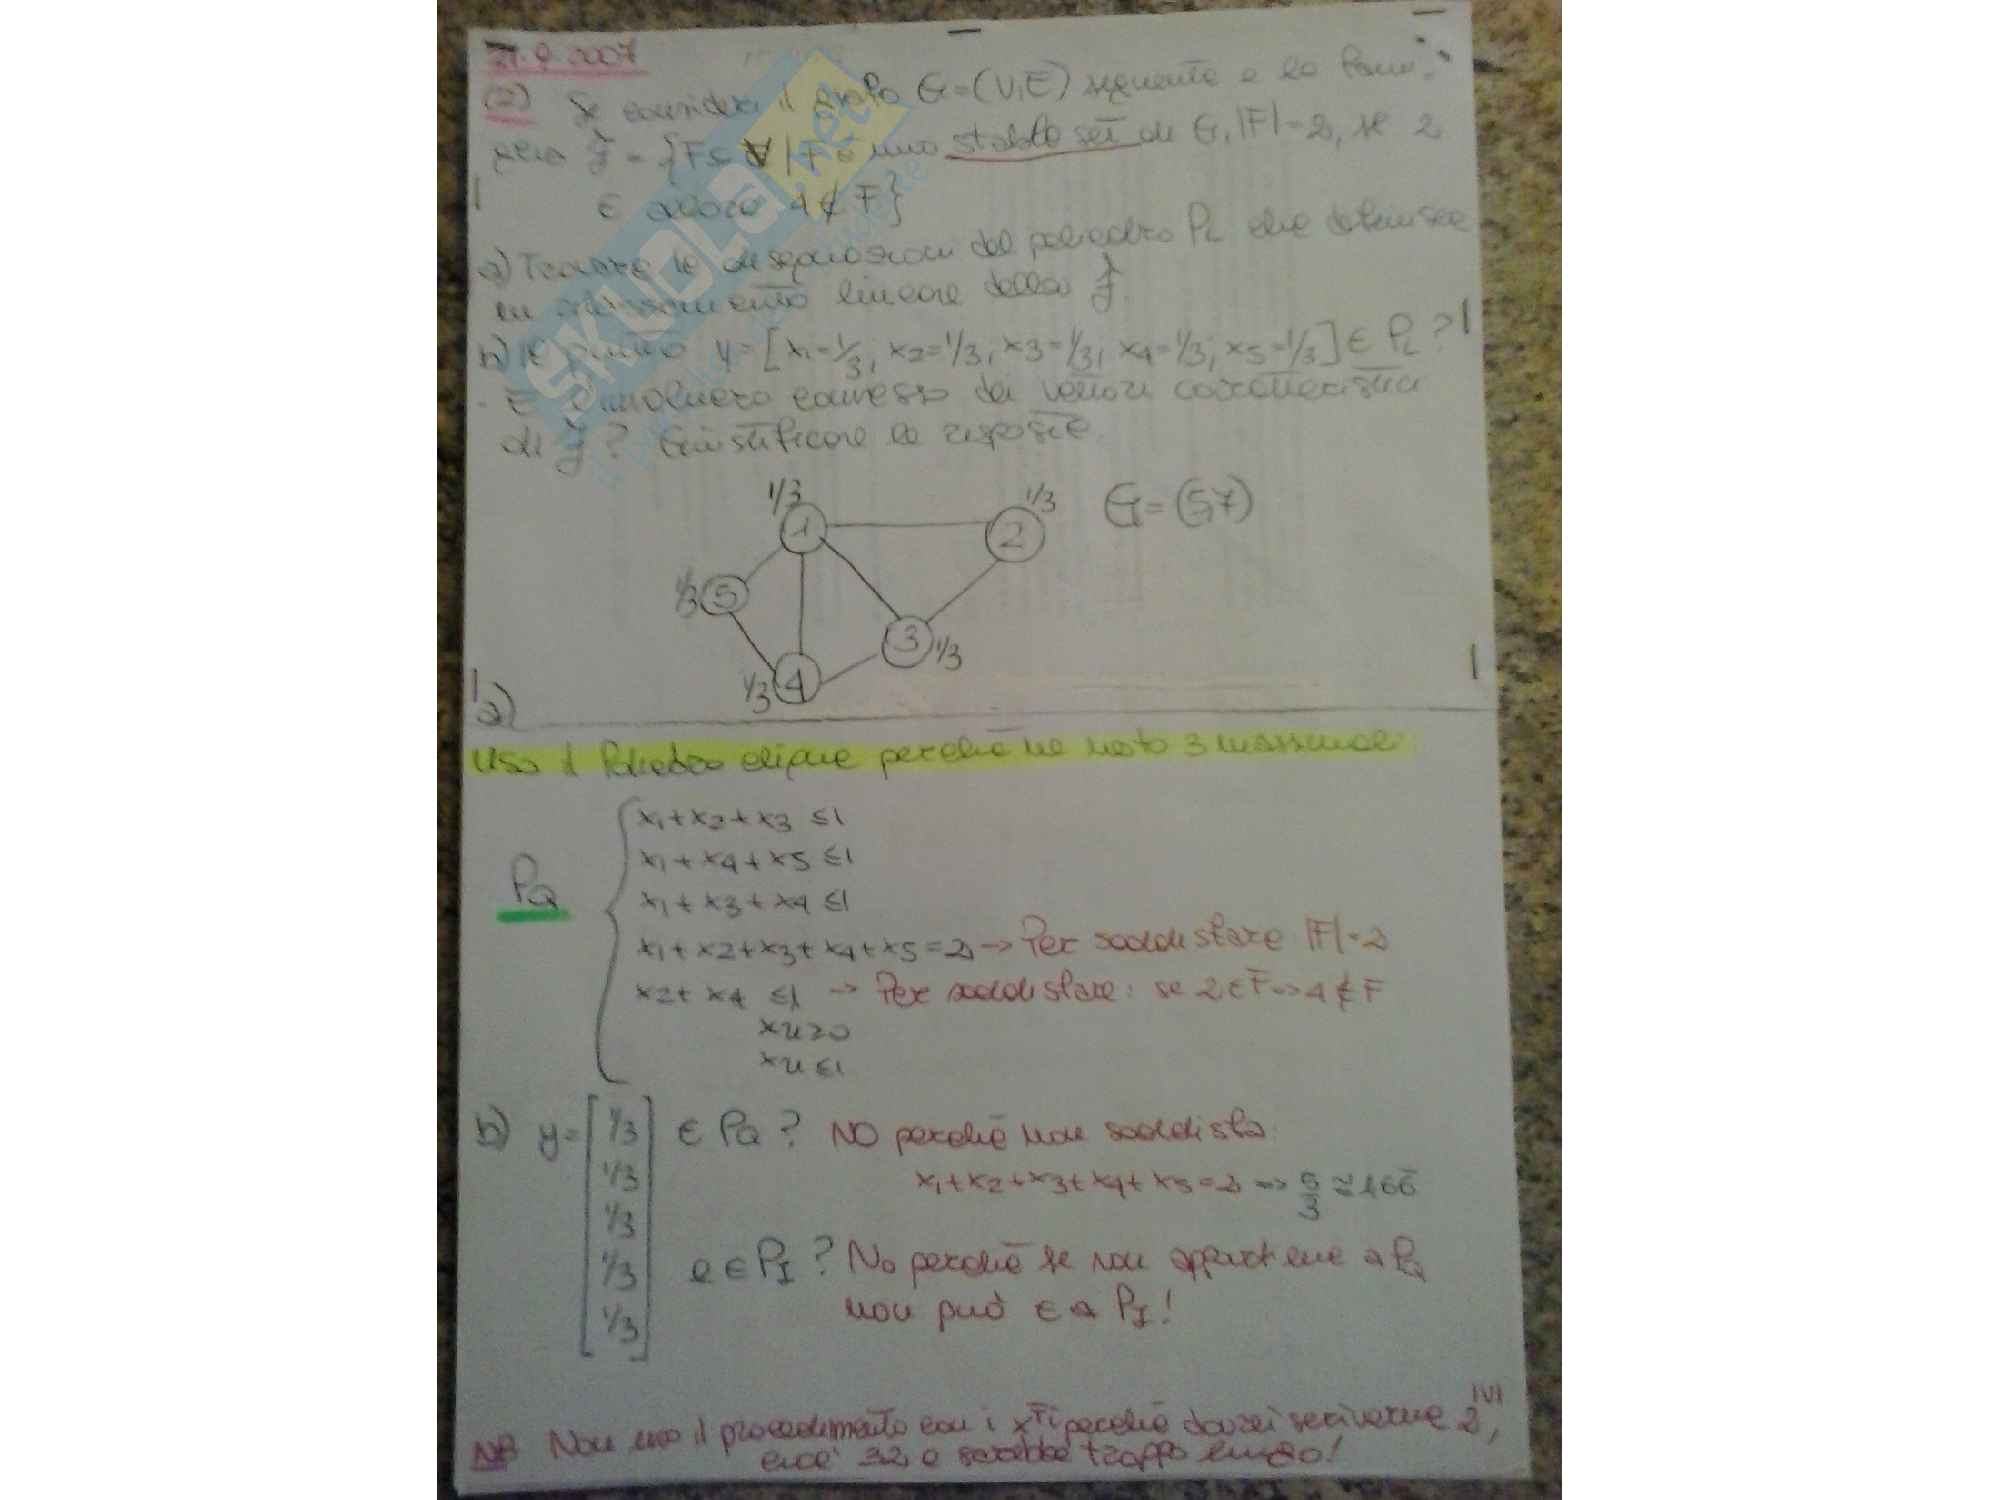 21.9.2007
(2) Si consideri il grafo G=(V,E) seguente e la fami-
glia F = {F ⊆ V | F è uno stable set di G, |F|=2, se 2
∈ allora 4 ∉ F}
a) Trovare le disequazioni del poliedro PL che definisce
un rilassamento lineare della F.
b) Il punto y=[x1=1/3, x2=1/3, x3=1/3, x4=1/3, x5=1/3] ∈ PL?
E l'involucro convesso dei vettori caratteristici
di F? Giustificare le risposte.
1/3
1/3
G=(5,7)
1
2
1/3
5
3
1/3
1/3
4
a)
Uso il Poliedro clique perché ne noto 3 massimali:
x1+x2+x3 ≤1
x1+x4+x5 ≤1
PQ
x1+x3+x4 ≤1
x1+x2+x3+x4+x5=2 → Per soddisfare |F|=2
x2+x4 ≤1 → Per soddisfare: se 2∈F => 4∉F
xu≥0
xu≤1
b) y= [1/3 1/3 1/3 1/3 1/3] ∈ PQ? NO perché non soddisfa:
x1+x2+x3+x4+x5=2 => 5/3 ≅ 1.66
e ∈ PI? No perché se non appartiene a PQ
non può ∈ a PI!
NB Non uso il procedimento con i x^Fi perché dovrei scriverne 2^|V|,
cioè 32 e sarebbe troppo lungo!
SKUOLA.net